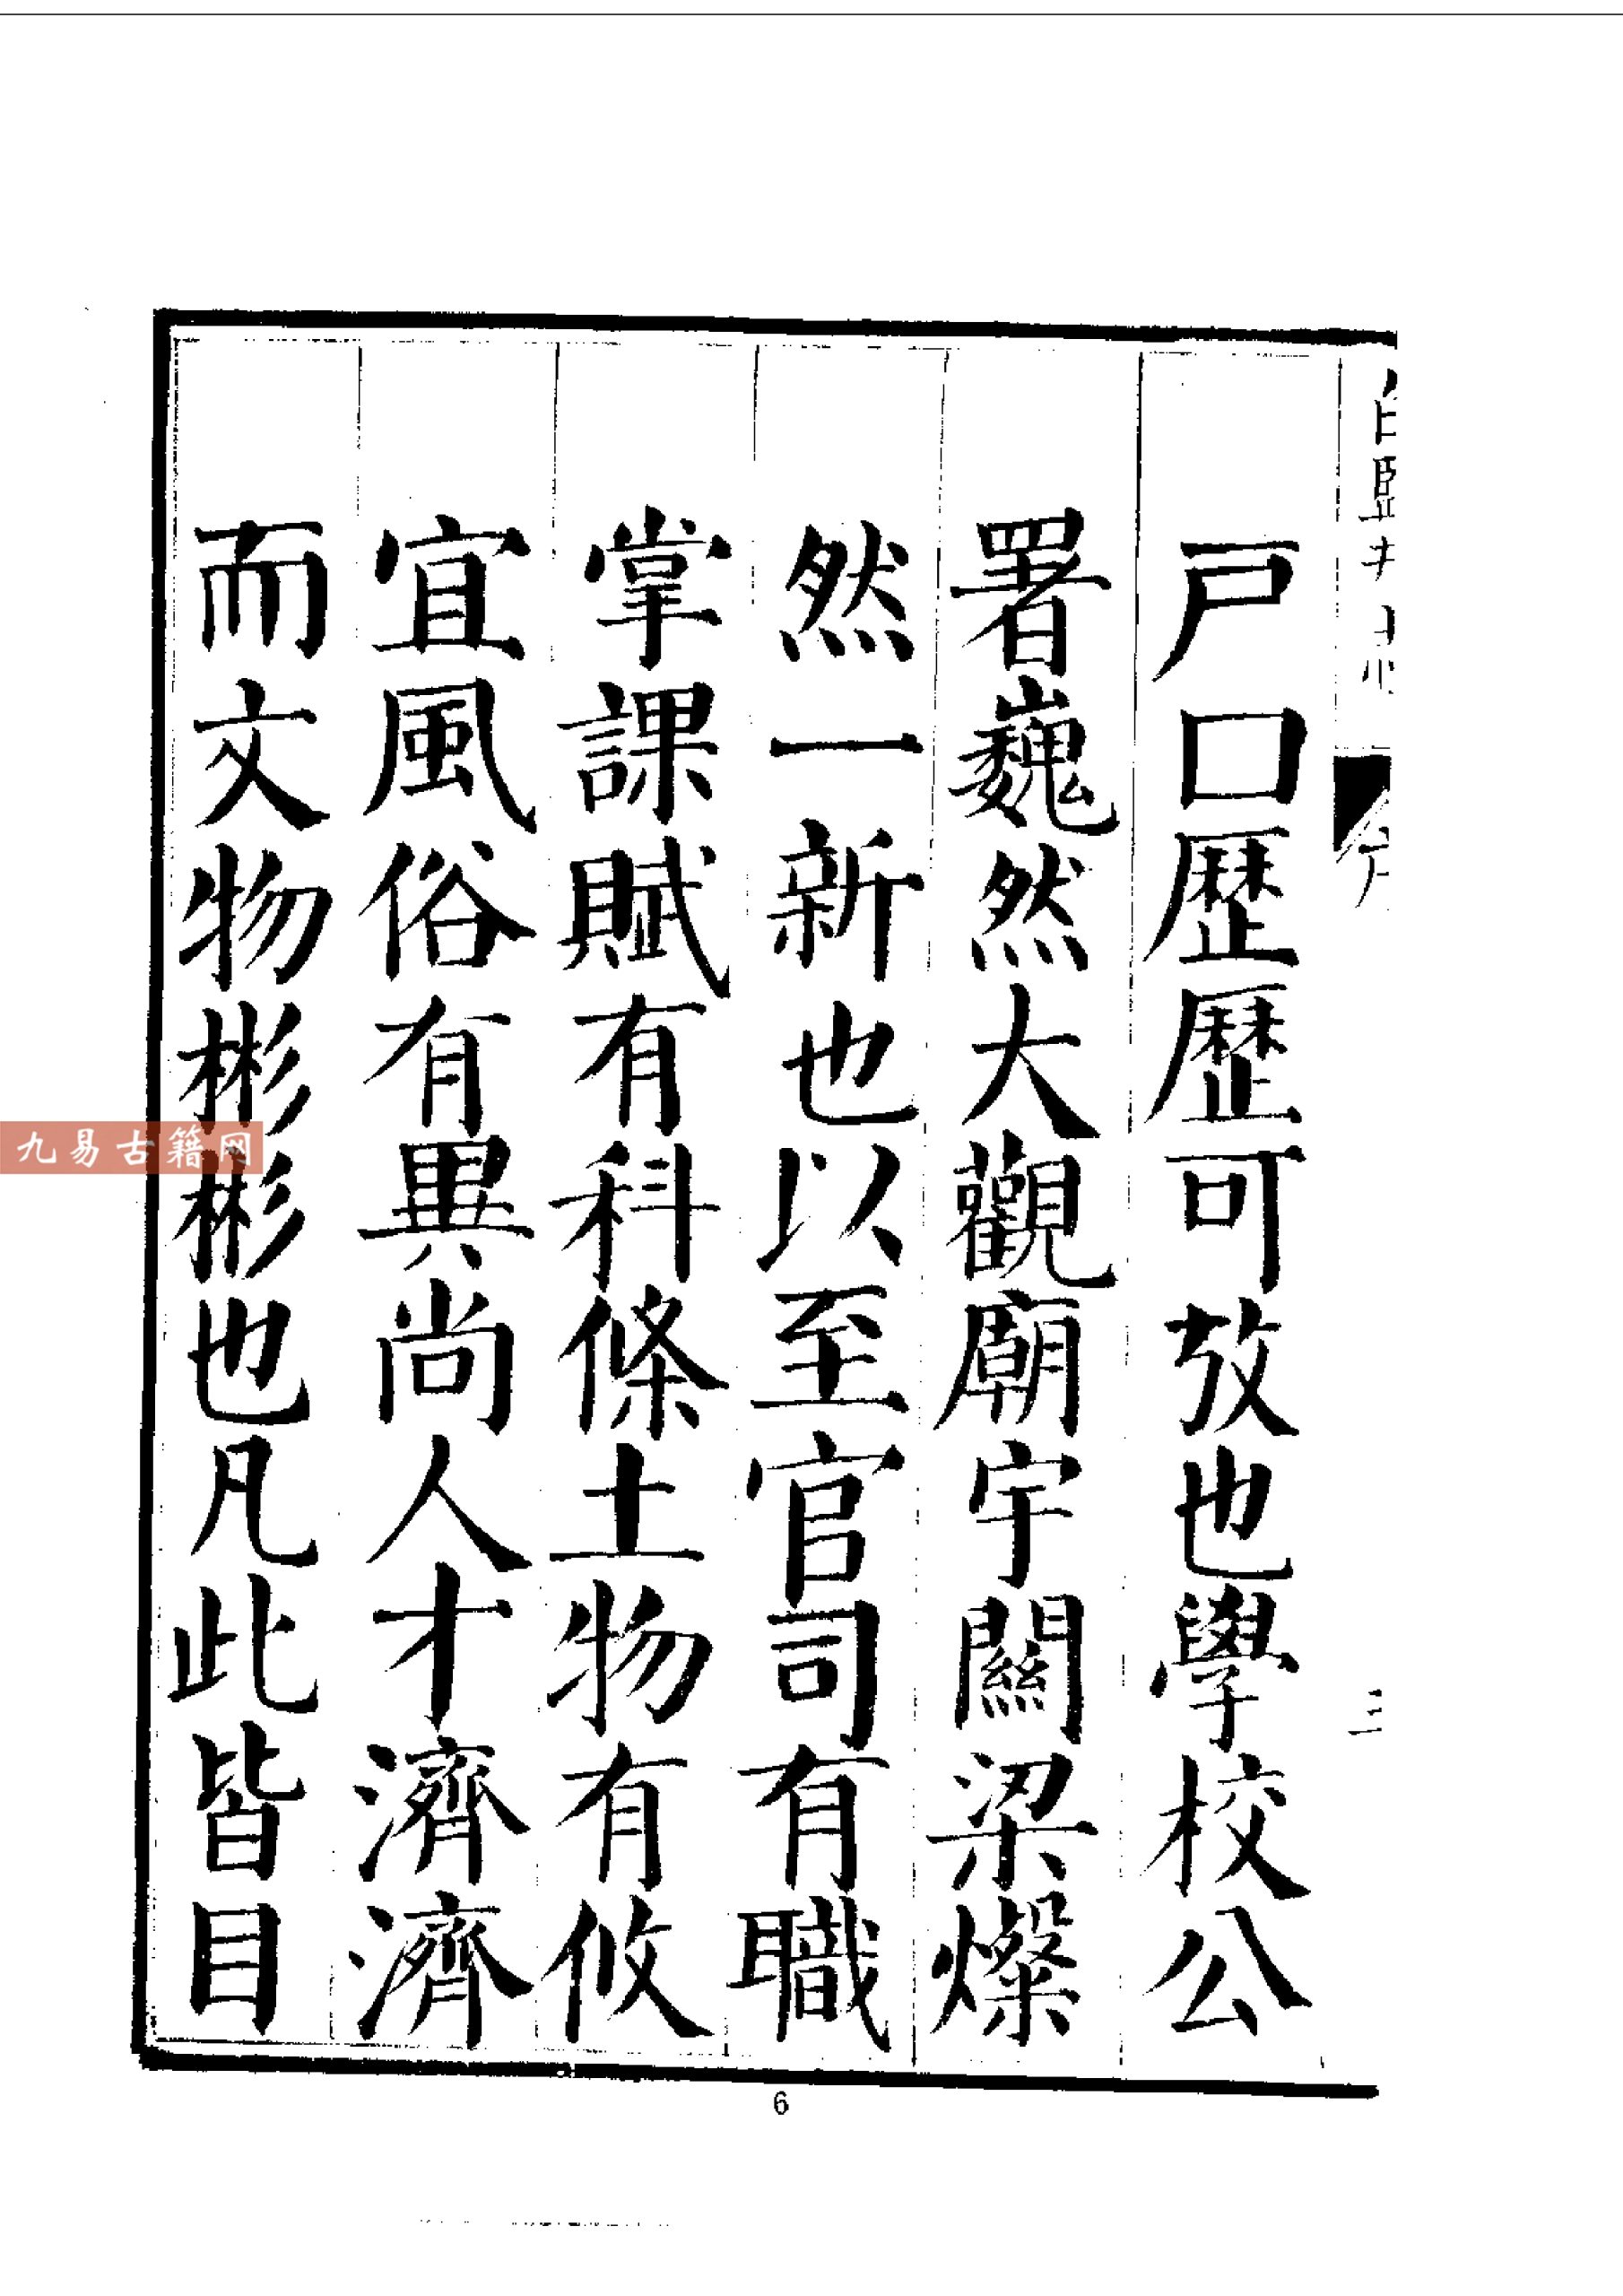 白鹽井志
序
三
戸口歴歴可攷也學校公
署巍然大觀廟宇關梁燦
然一新也以至官司有職
掌課賦有科條土物有攸
宜風俗有異尚人才濟濟
而文物彬彬也凡此皆目
6
九易古籍网